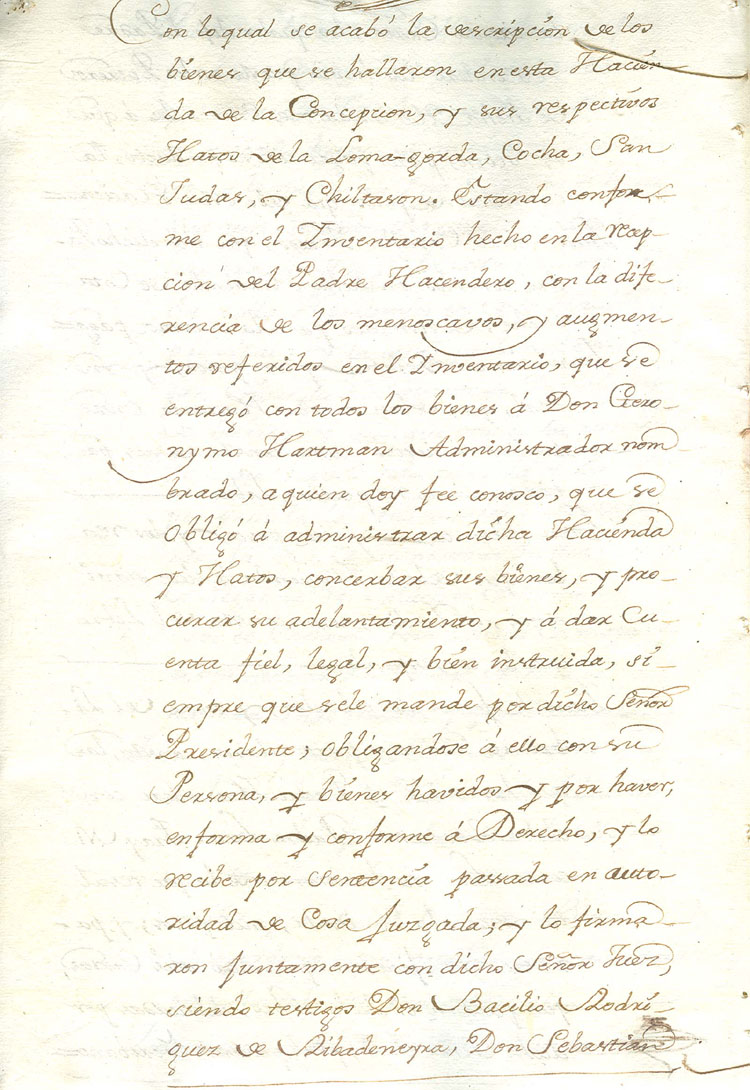 Con lo qual se acabó la descripción de los
bienes que se hallaron en esta Hacien
da de la Concepcion, y sus respectivos
Hatos de la Loma-gorda, Cocha, San
Judas, y Chiltason. Estando confor-
me con el Inventario hecho en la recep-
ción del Padre Hacendero, con la dife-
rencia de los menoscavos, y augmen-
tos referidos en el Inventario, que se
entregó con todos los bienes á Don Gero-
nymo Hartman Administrador nom-
brado, a quien doy fee conosco, que se
obligó á administrar dicha Hacienda
y Hatos, concerbar sus bienes, y pro-
curar su adelantamiento, y á dar Cu-
enta fiel, legal, y bien instruida, si-
empre que sele mande por dicho Señor
Presidente; obligandose á ello con su
Persona, y bienes havidos y por haver,
en forma y conforme á Derecho, y lo
recibe por Sentencia passada en auto-
ridad de Cosa Juzgada; y lo firma-
ron Juntamente con dicho Señor Juez,
siendo testigos Don Bacilio Rodri-
guez de Ribadeneyra, Don Sebastian